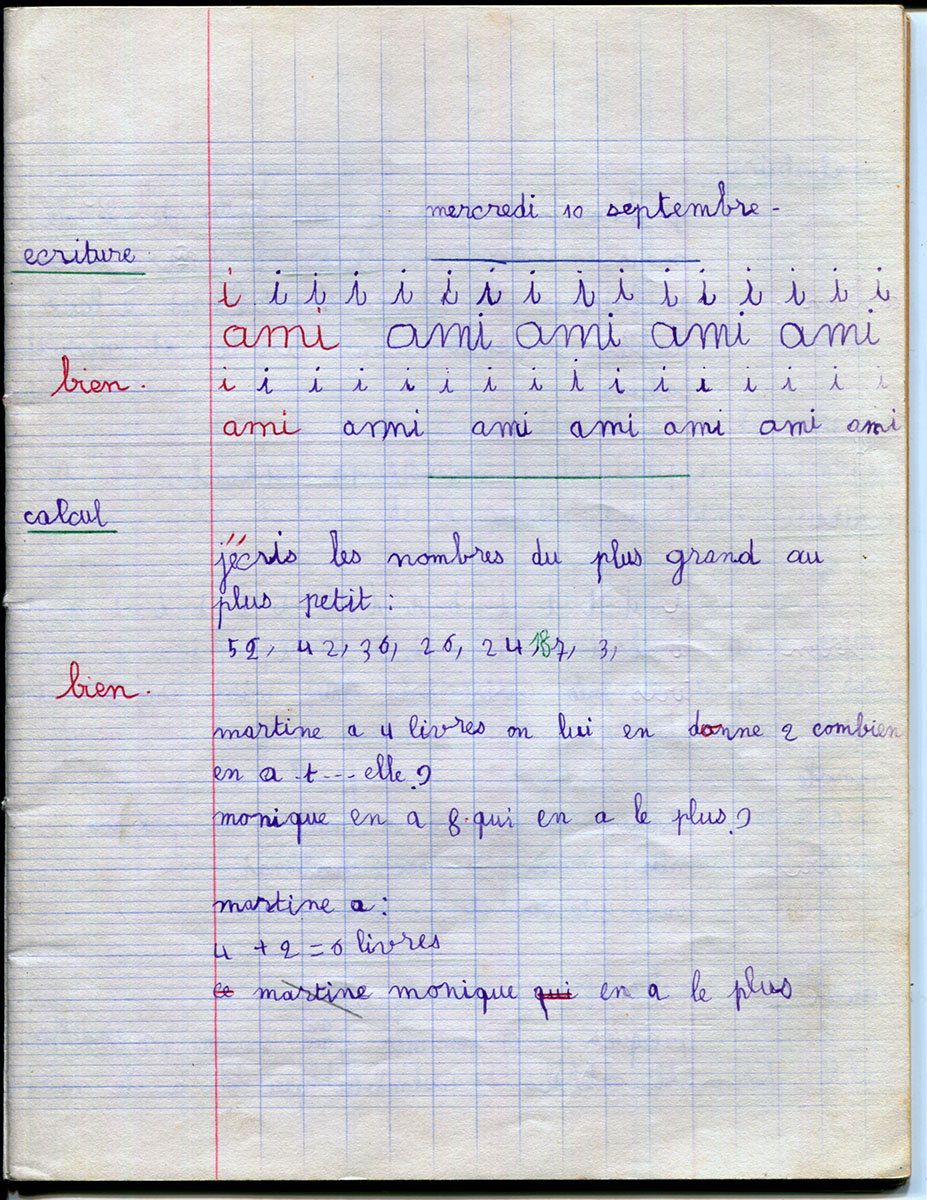 mercredi 10 septembre -
ecriture
i i i i i i i i i i i i i i i i
ami ami ami ami ami
bien. i i i i i i i i i i i i i i i i
ami anmi ami ami ami ami ami
calcul
j'écris les nombres du plus grand au
plus petit :
52, 42, 36, 26, 24, 18 7, 3,
bien.
martine a 4 livres on lui en donne 2 combien
en a -t--- elle ?
monique en a 8. qui en a le plus ?
martine a :
4 + 2 = 6 livres
le martine monique qui en a le plus